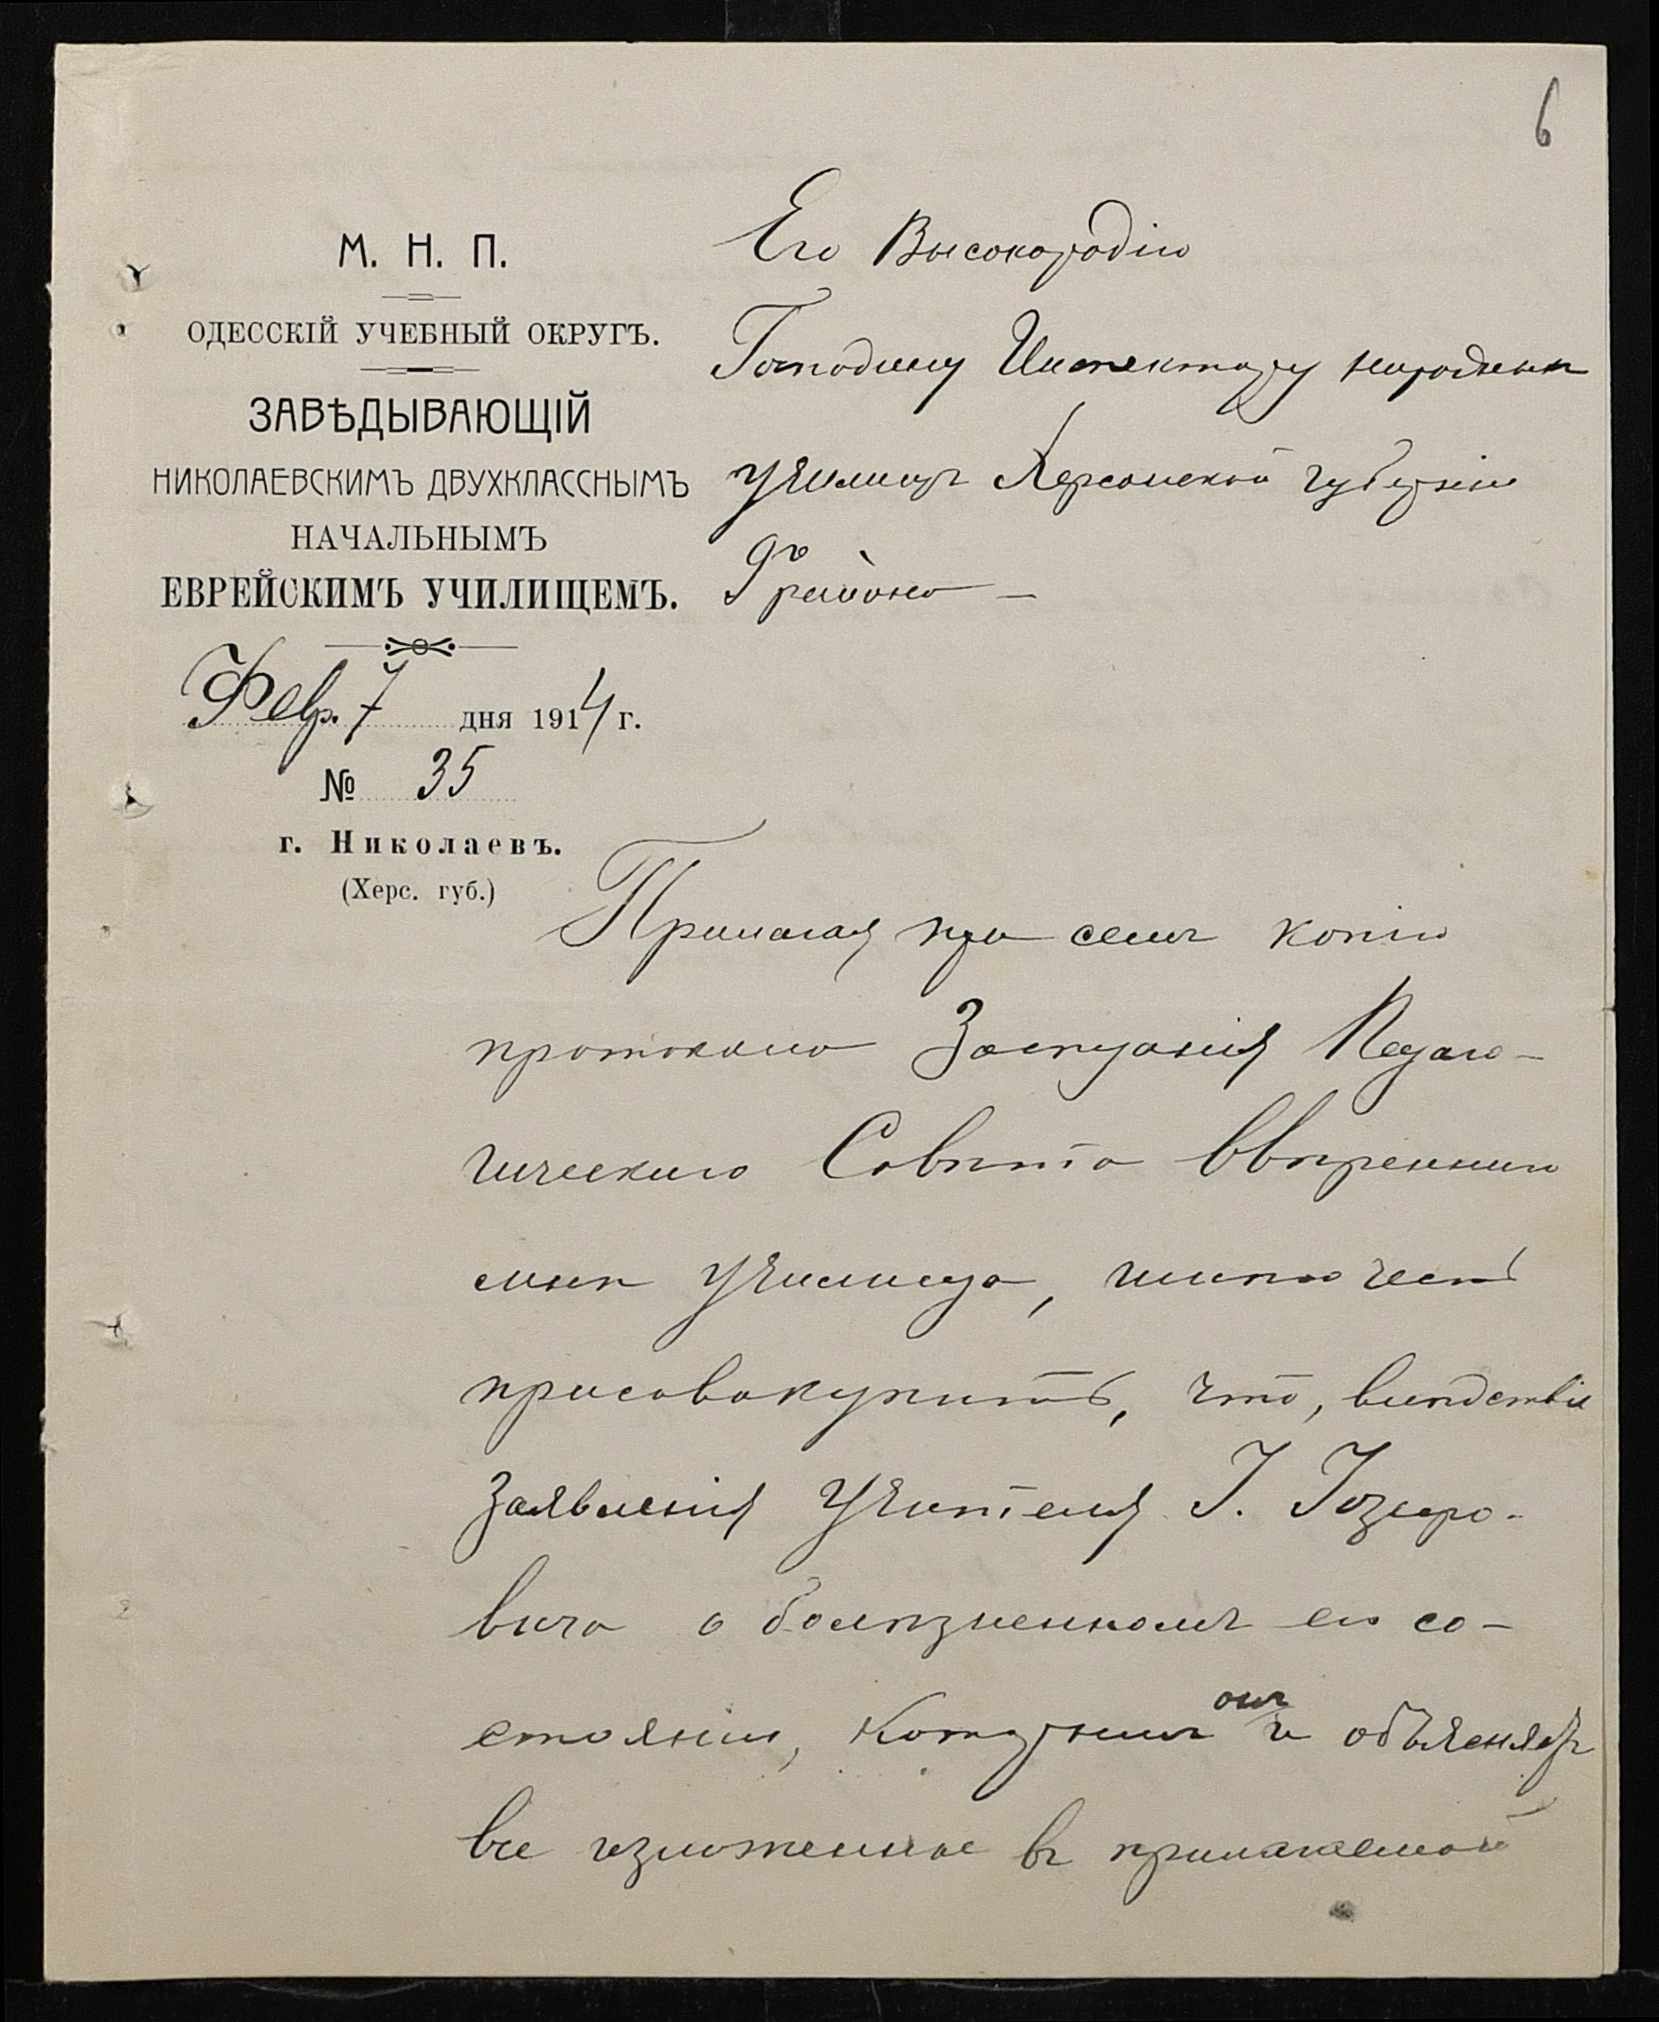 6
М. Н. П.
ОДЕССКІЙ УЧЕБНЫЙ ОКРУГЪ.
ЗАВѢДЫВАЮЩІЙ
НИКОЛАЕВСКИМЪ ДВУХКЛАССНЫМЪ
НАЧАЛЬНЫМЪ
ЕВРЕЙСКИМЪ УЧИЛИЩЕМЪ.
Февр. 7 дня 1914 г.
№ 35
г. Николаевъ.
(Херс. губ.)
Его Высокородію
Господину Инспектору народныхъ
училищъ Херсонской губерніи
района
Прилагая при семъ копію
протокола Засѣданія Педаго-
гическаго Совѣта ввѣреннаго
мнѣ училища, имѣю честь
присовокупить, что, вслѣдствіе
заявленія учителя І. Іозефо-
вича о болѣзненномъ его со-
стояніи, которымъ онъ и объясняетъ
все изложенное въ прилагаемой